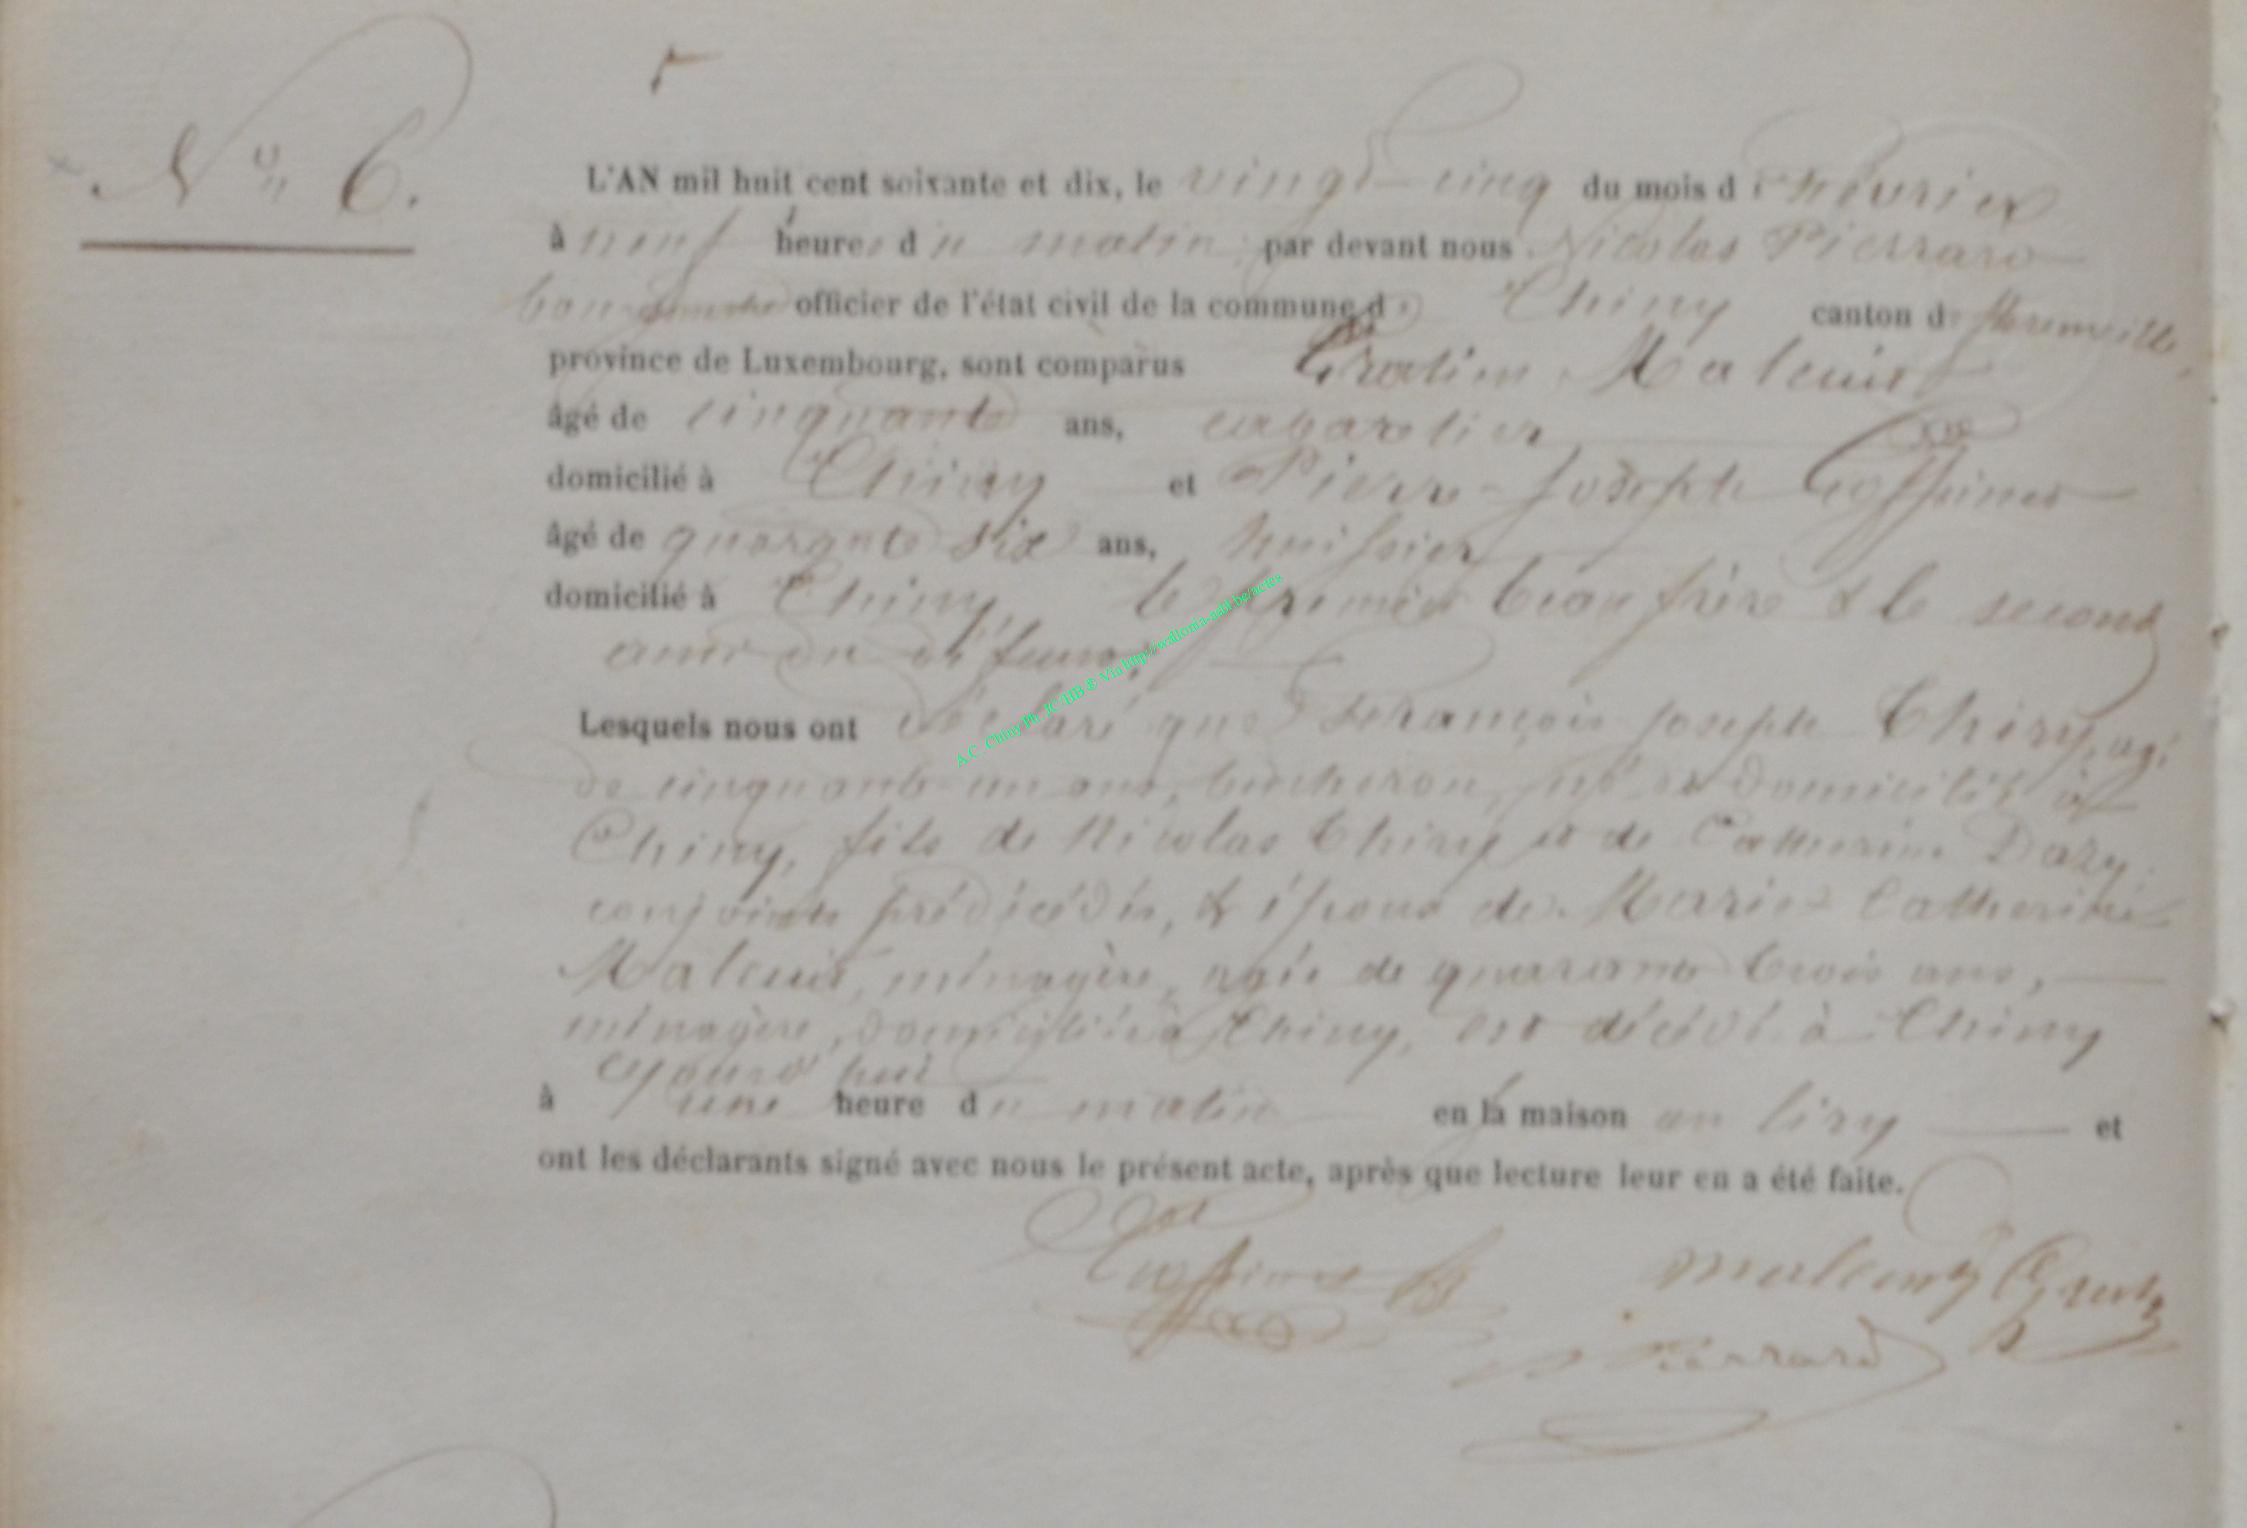 5
N° 6.
L'AN mil huit cent soixante et dix, le vingt-cinq du mois de février
à neuf heures du matin par devant nous Nicolas Pierrard
bourgmestre officier de l'état civil de la commune de Chiny canton de Florenville,
province de Luxembourg, sont comparus Gratien Maleuit
âgé de cinquante ans, cabaretier
domicilié à Chiny et Pierre-Joseph Goffinet
âgé de quarante six ans, huissier
domicilié à Chiny, le premier beau frère & le second
ami du défunt,
Lesquels nous ont déclaré que François Joseph Thiry, agé
de cinquante-un ans, bucheron, né et domicilié à
Chiny, fils de Nicolas Thiry et de Catherine Dazy,
conjoints prédécédés, & époux de Marie Catherine
Maleuit, ménagère, agée de quarante trois ans,
ménagère, domiciliée à Chiny, est décédé à Chiny
aujourd'hui
à une heure du matin en la maison et
ont les déclarants signé avec nous le présent acte, après que lecture leur en a été faite.
Goffinet
Pierrard
A.C. Chiny Ph. JC HB © Via http://wallonia-asbl.be/actes